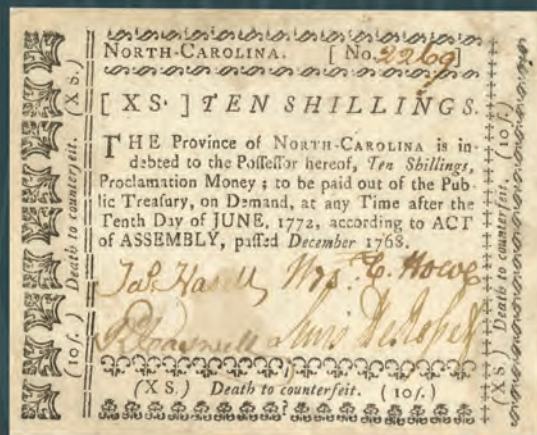 NORTH-CAROLINA. [ No. 2269 ]
[ XS. ] TEN SHILLINGS.
THE Province of NORTH-CAROLINA is in-
debted to the Poſſeſſor hereof, Ten Shillings,
Proclamation Money; to be paid out of the Pub-
lic Treaſury, on Demand, at any Time after the
Tenth Day of JUNE, 1772, according to ACT
of ASSEMBLY, paſſed December 1768.
Jas. Hasell
Howe
R Caswell
Lewis De Rosset
(XS.) Death to counterfeit. (10ſ.)
(10ſ.) Death to counterfeit. (XS.)
(XS.) Death to counterfeit. (10ſ.)